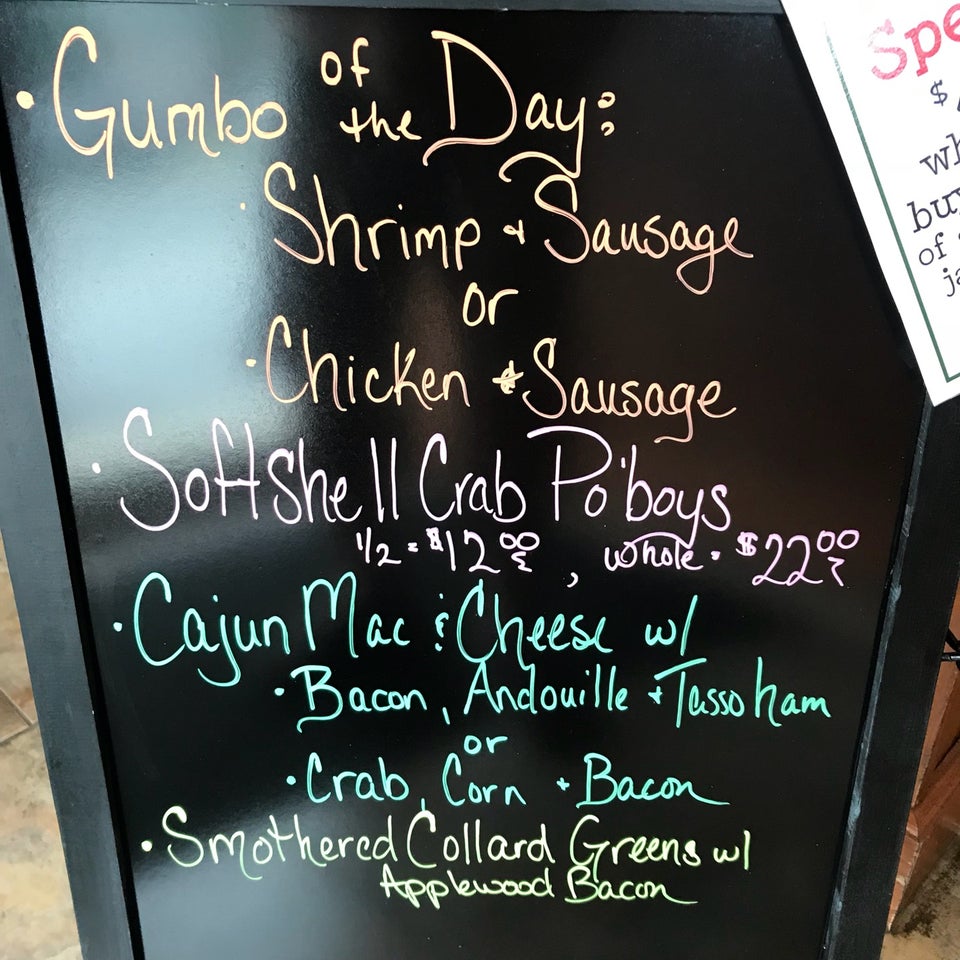 • Gumbo of the Day:
• Shrimp & Sausage
or
• Chicken & Sausage
• Softshell Crab Po'boys
1/2 = $12.00, whole = $22.00
• Cajun Mac & Cheese w/
• Bacon, Andouille + Tasso ham
or
• Crab, Corn + Bacon
• Smothered Collard Greens w/
Applewood Bacon
Spe
$
wh
buy
of
ja